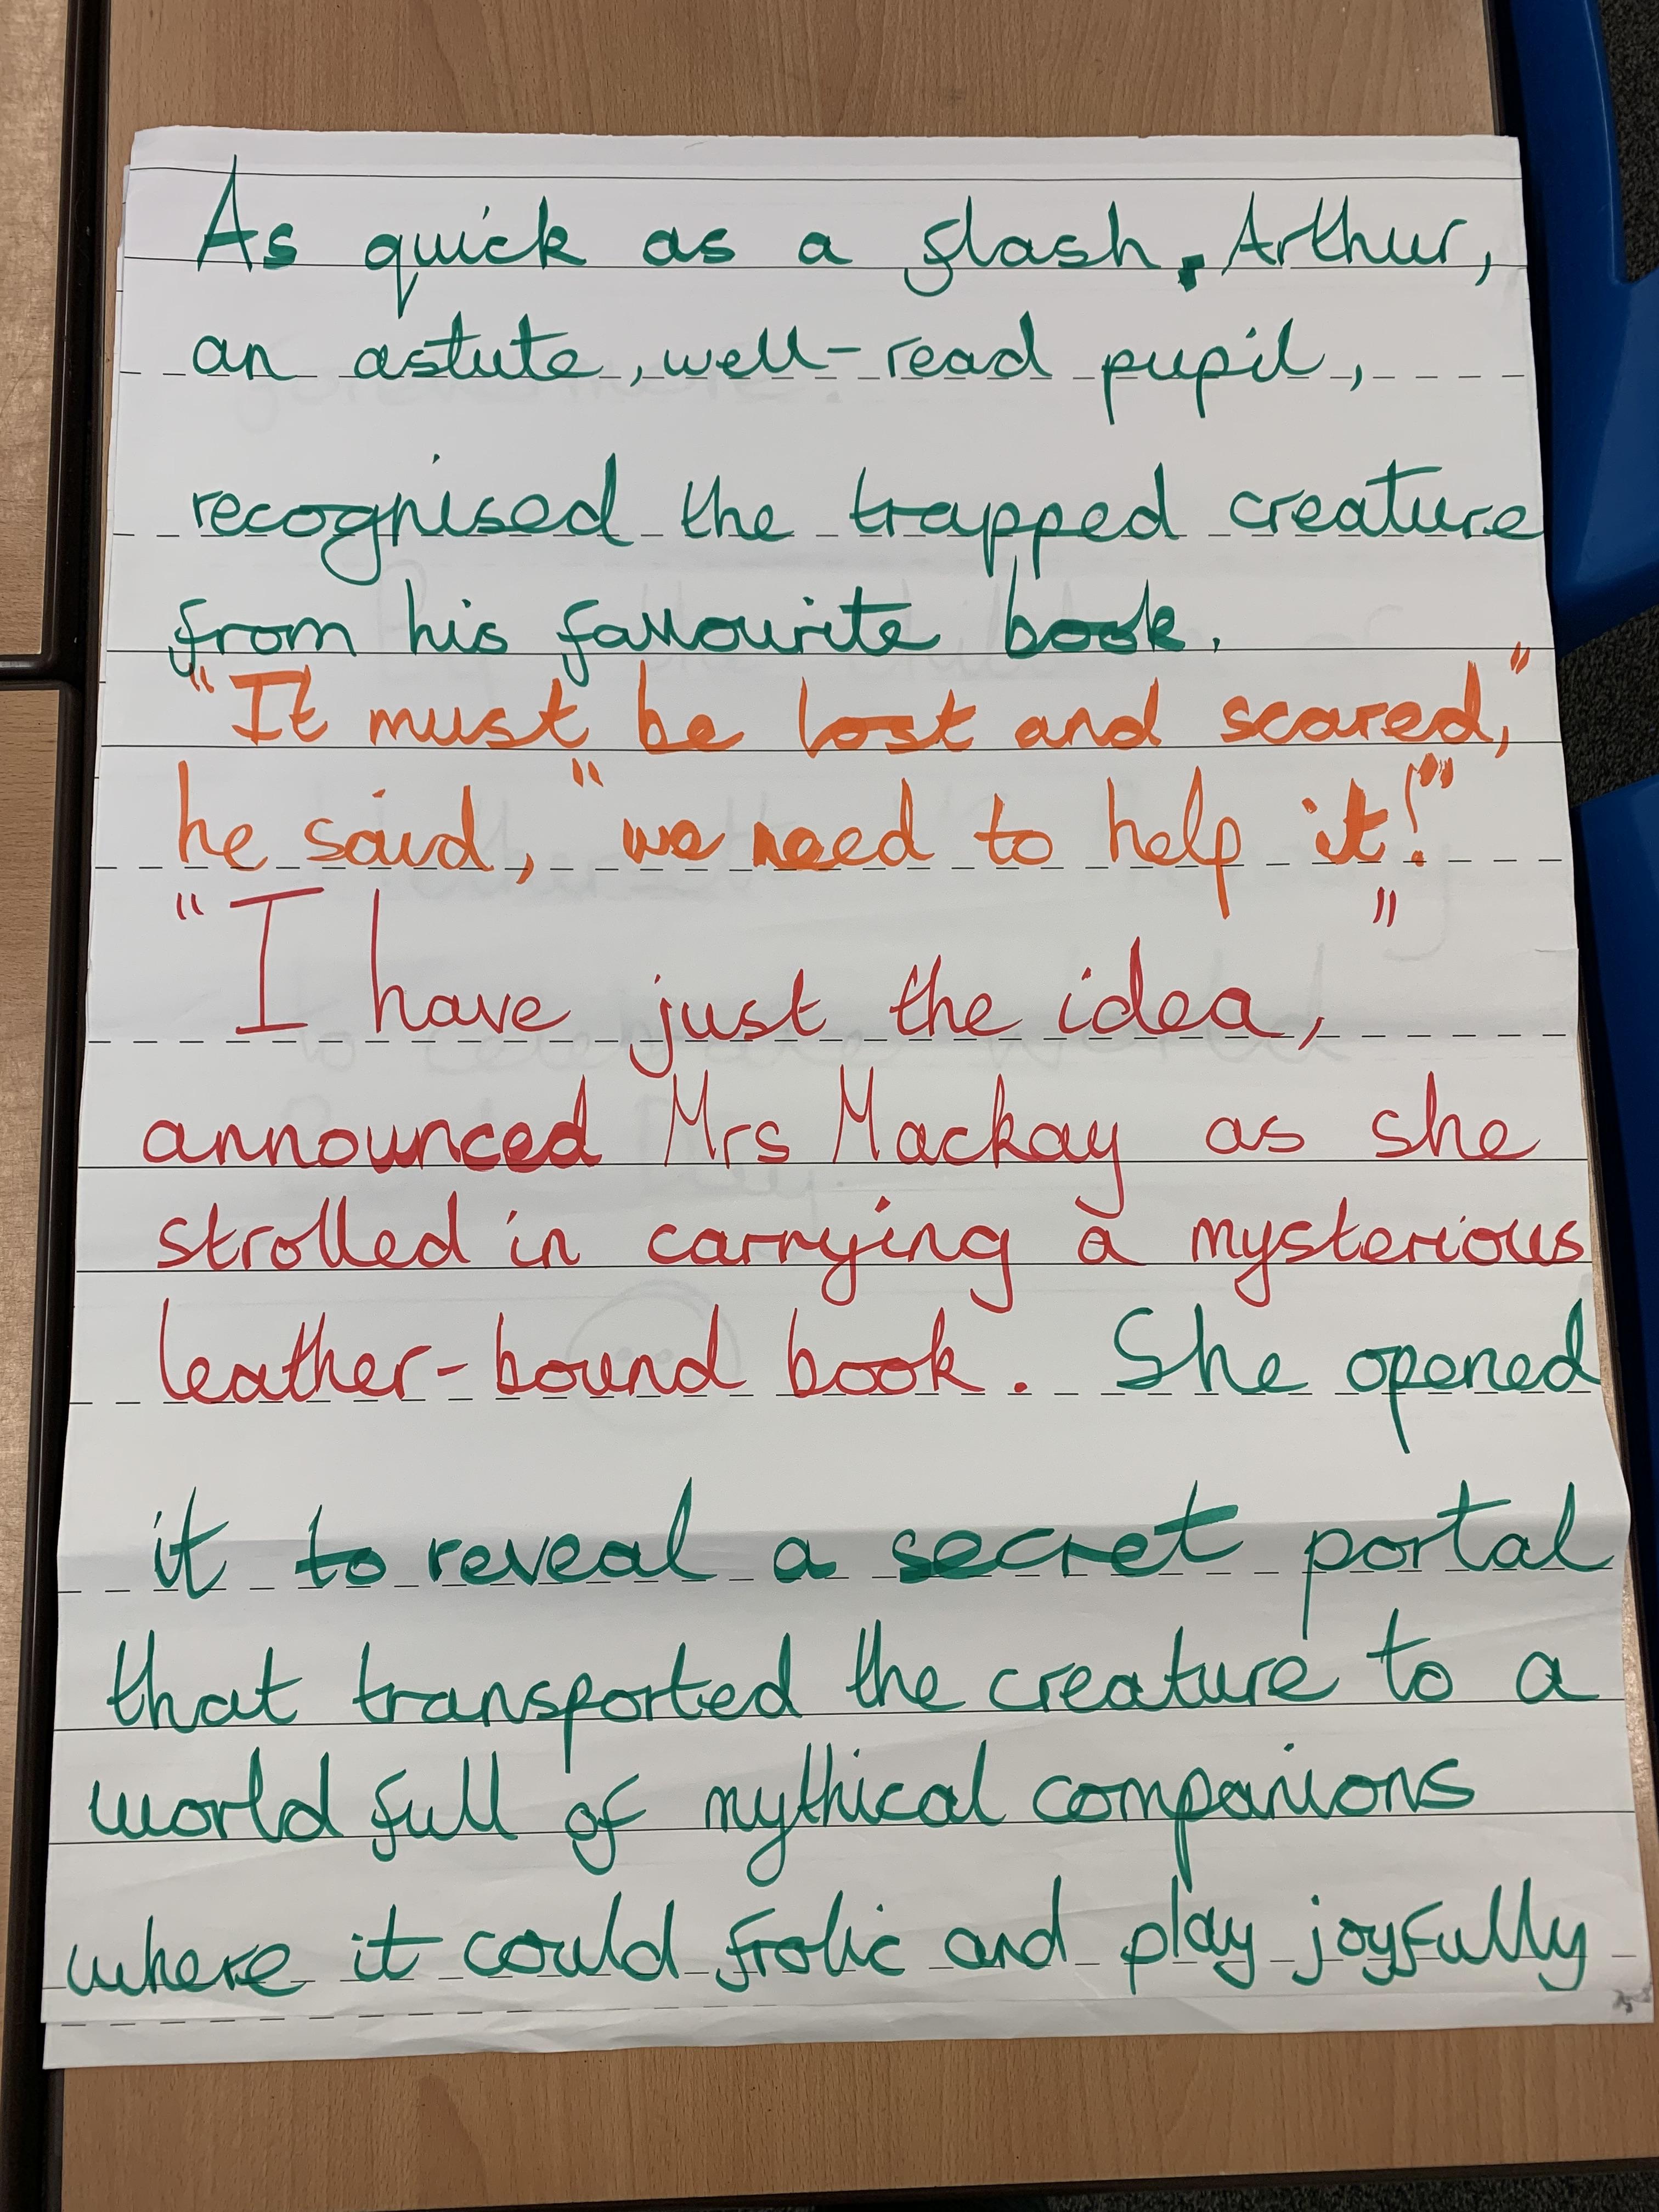 As quick as a flash, Arthur,
an astute, well-read pupil,
recognised the trapped creature
from his favourite book.
"It must be lost and scared,"
he said, "we need to help it!"
"I have just the idea,"
announced Mrs Mackay as she
strolled in carrying a mysterious
leather-bound book. She opened
it to reveal a secret portal
that transported the creature to a
world full of mythical companions
where it could frolic and play joyfully